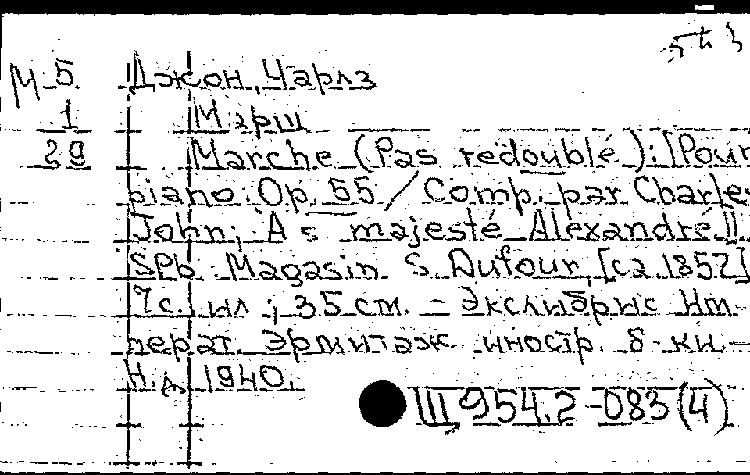 М 5 Джон, Чарлз
1 Марш
29 Marche (Pas redoublé): [Pour
piano. Op. 55 / Comp. par Charles
John; À s majesté Alexandre II
SPb Magasin S. Dufour, [ca 1857]
7с. ил; 35 см. – Экслибрис Им-
перат. Эрмитаж иностр. б-ки. –
Н.д. 1940.
III 954.2-083(4)